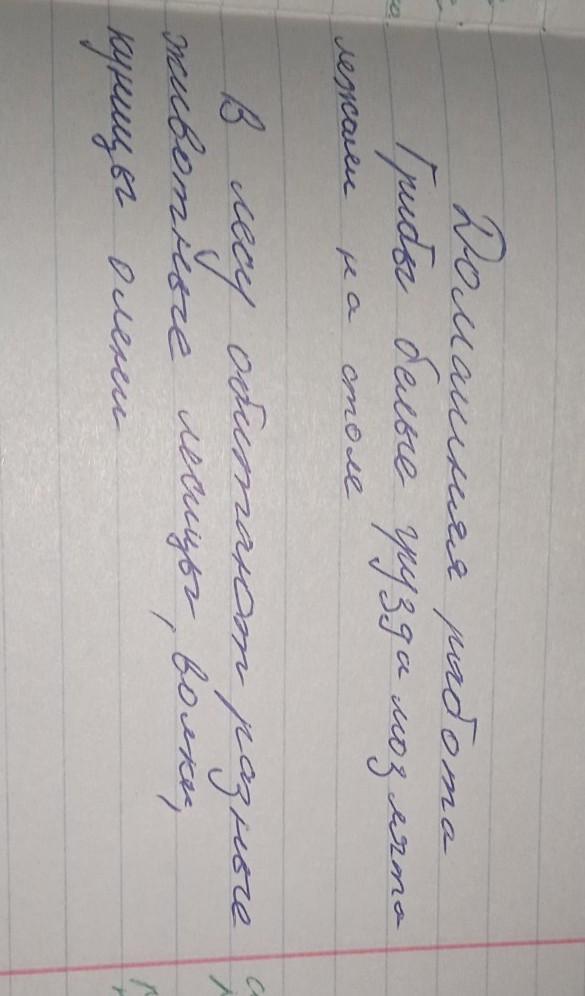 Домашняя работа
Грибы белые грузди мозлята
лежали на столе
В лесу обитают разные
животные лесицы, волки,
куницы олени